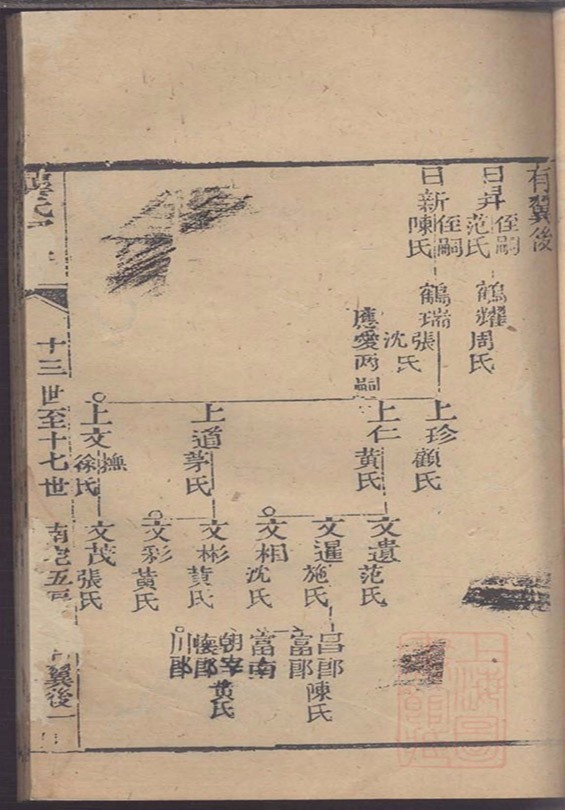 有翼後
日昇 侄嗣 范氏
鶴耀 周氏
日新 侄嗣 陳氏
鶴瑞 張氏 沈氏
應愛兩嗣
上珍 顧氏
上仁 黄氏
上道 茅氏
上文 撫 徐氏
文遺 范氏
文暹 施氏
文相 沈氏
文彬 黄氏
文彩 黄氏
文茂 張氏
昌郎 陳氏
富郎
富南
朝宰 黄氏
懷郎
川郎
十三世至十七世
翼後一